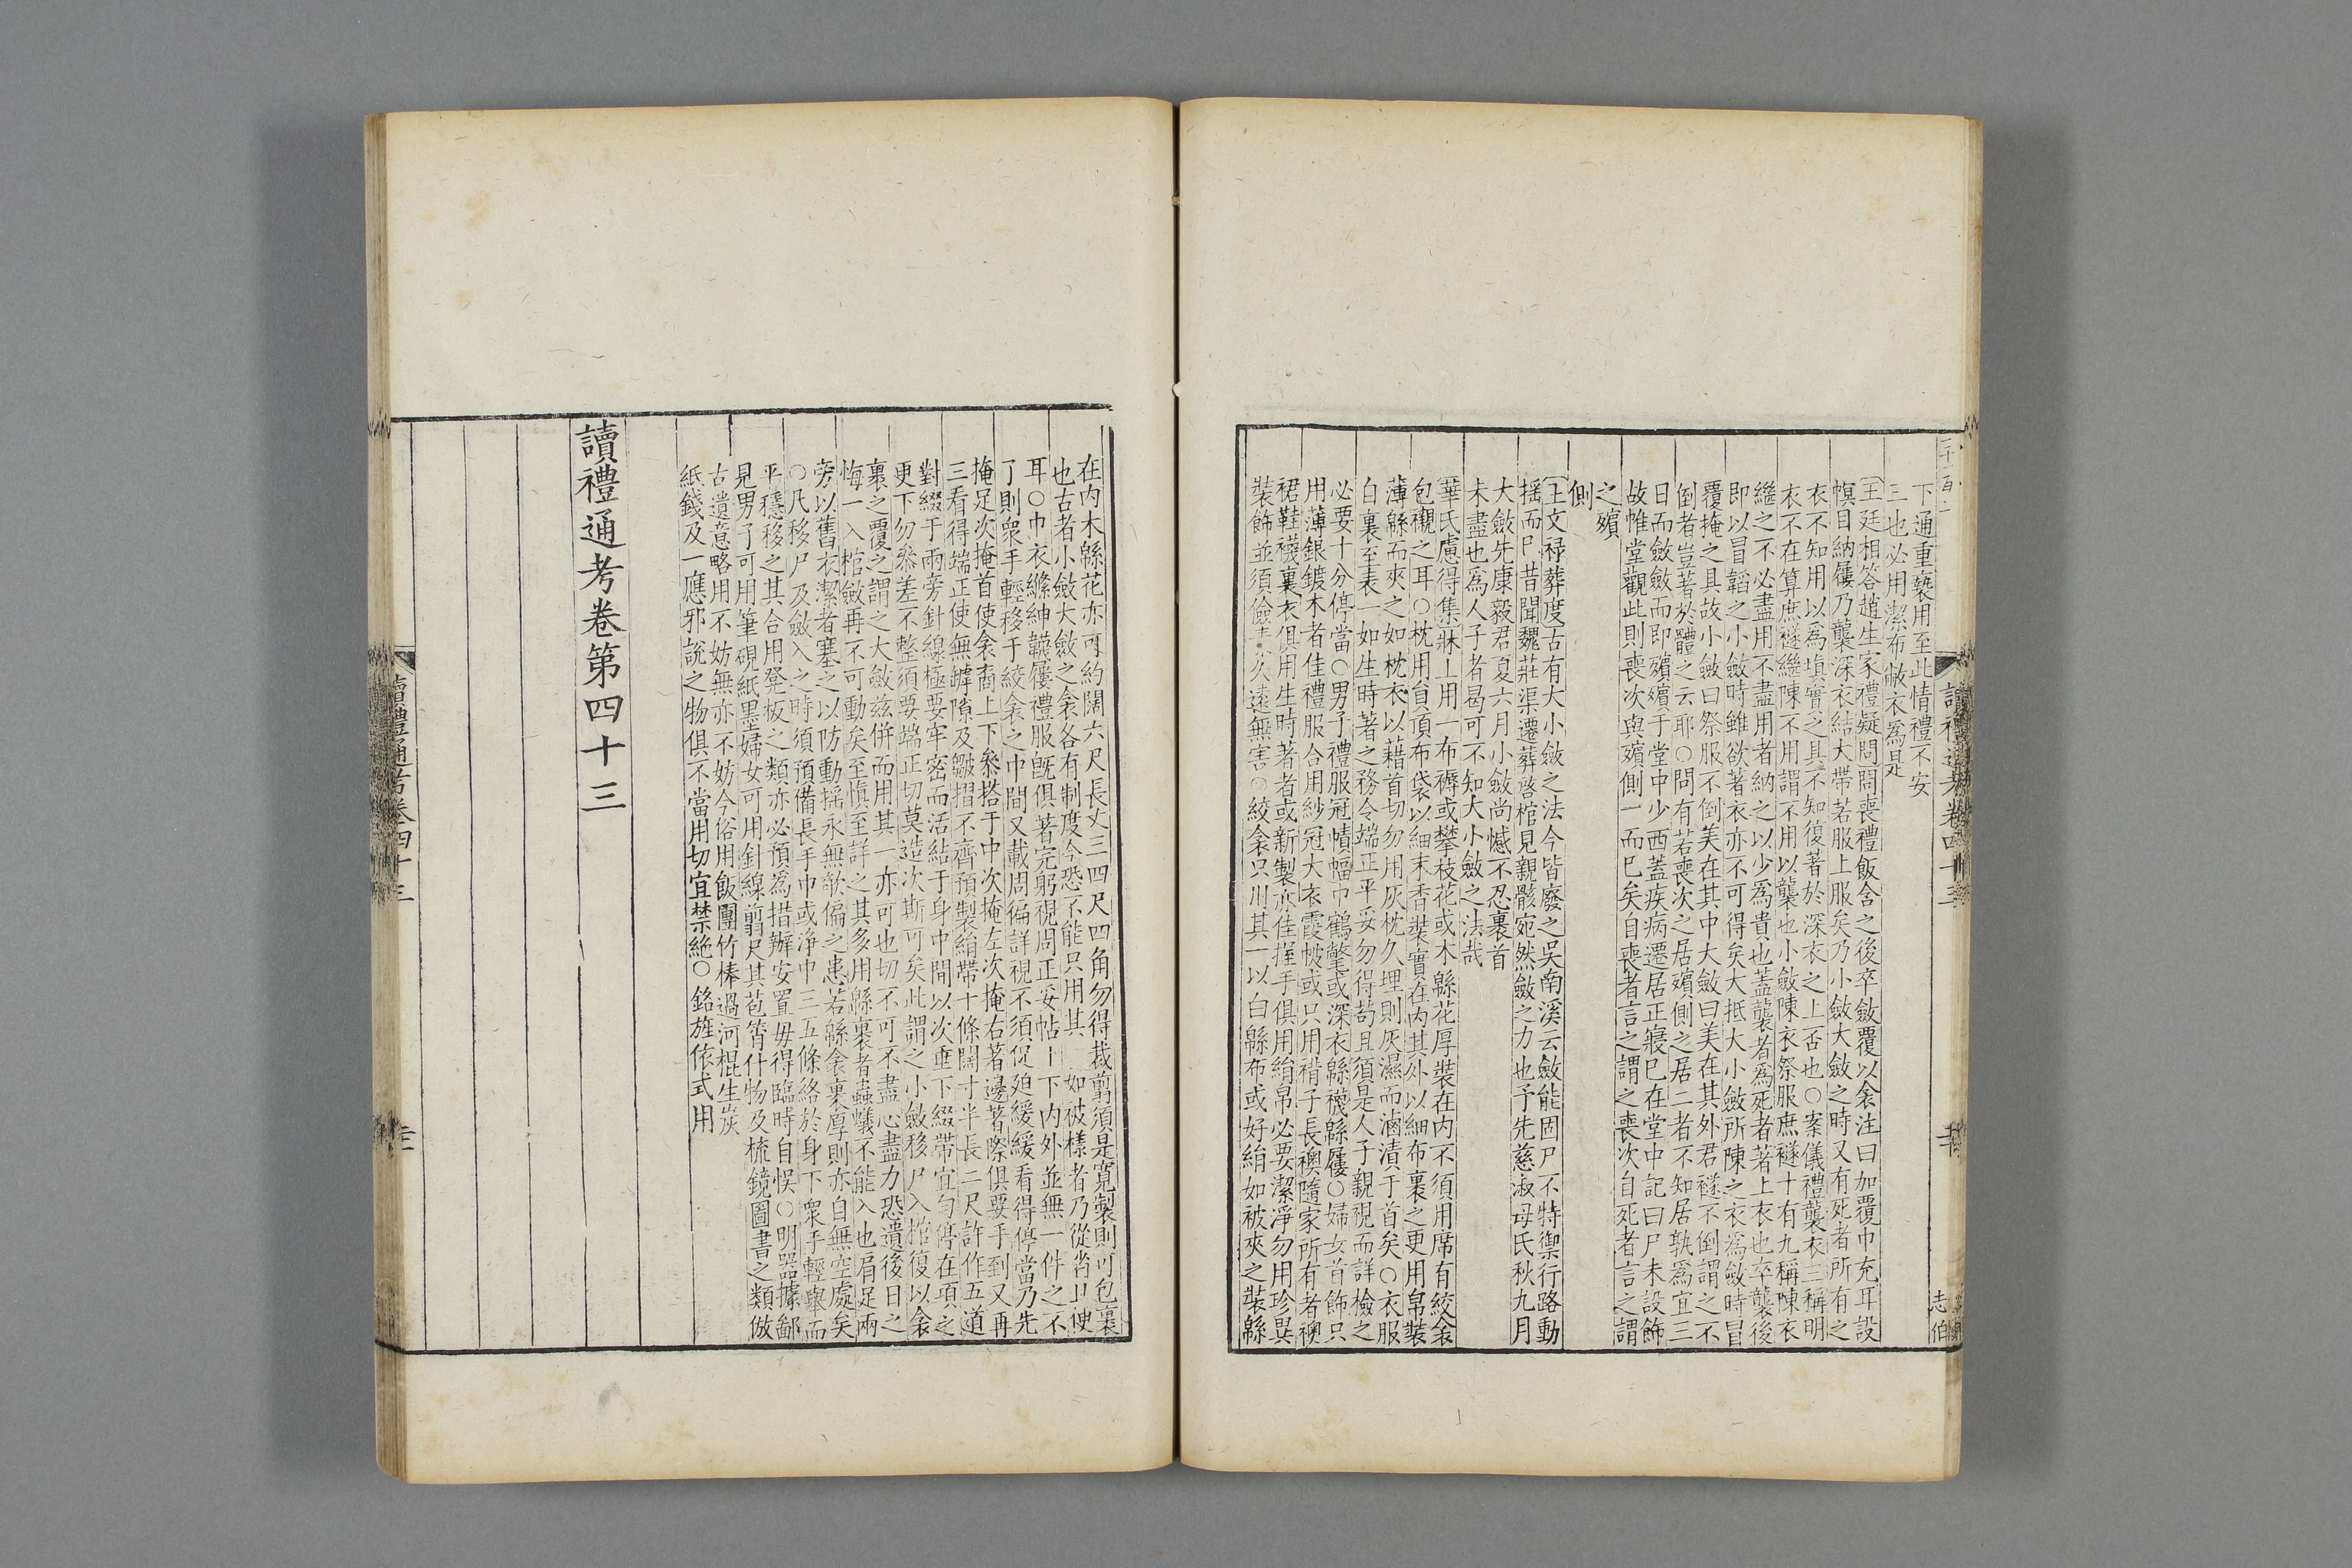 下通重褻用至此情禮不安
三也必用潔布敝衣爲是
王廷相答趙生家禮疑問問喪禮飯含之後卒斂覆以衾注曰加覆巾充耳設
幎目納屨乃襲深衣結大帶若服上服矣乃小斂大斂之時又有死者所有之
衣不知用以爲塡實之具不知復著於深衣之上否也○案儀禮襲衣三稱明
衣不在算庶襚繼陳不用謂不用以襲也小斂陳衣祭服庶襚十有九稱陳衣
繼之不必盡用不盡用者納之以少爲貴也蓋襲者爲死者著上衣也卒襲後
即以冒韜之小斂時雖欲著衣亦不可得矣大抵大小斂所陳之衣爲斂時冒
覆掩之具故小斂曰祭服不倒美在其中大斂曰美在其外君襚不倒謂之不
倒者豈著於體之云耶○問有若喪次之居殯側之居二者不知居孰爲宜三
日而斂斂而即殯殯于堂中少西蓋疾病遷居正寢已在堂中記曰尸未設飾
故帷堂觀此則喪次與殯側一而已矣自喪者言之謂之喪次自死者言之謂
之殯
側
王文祿葬度古有大小斂之法今皆廢之吳南溪云斂能固尸不特禦行路動
搖而尸昔聞魏莊渠遷葬啓棺見親骸宛然斂之力也予先慈淑母氏秋九月
大斂先康毅君夏六月小斂尚憾不忍裹首
未盡也爲人子者曷可不知大小斂之法哉
華氏慮得集牀上用一布褥或攀枝花或木緜花厚裝在内不須用席有絞衾
包襯之耳○枕用貟頂布袋以細末香裝實在内其外以細布裹之更用帛裝
薄緜而夾之如枕衣以藉首切勿用灰枕久埋則灰濕而滷漬于首矣○衣服
白裏至表一如生時著之務令端正平妥勿得苟且須是人子親視而詳檢之
必要十分停當○男子禮服冠幘幅巾鶴氅或深衣緜襪緜屨○婦女首飾只
用薄銀鍍木者佳禮服合用紗冠大衣霞帔或只用褙子長襖隨家所有者襖
裙鞋襪裏衣俱用生時著者或新製亦佳握手俱用絹帛必要潔淨勿用珍異
裝飾並須儉久遠無害○絞衾只用其一以白緜布或好絹如被夾之裝緜
在内木緜花亦可約闊六尺長丈三四尺四角勿得裁剪須是寛製則可包裹
也古者小斂大斂之衾各有制度今恐不能只用其如被樣者乃從省且便
耳○巾衣縧紳韈屨禮服旣俱著完躬視周正妥帖上下内外並無一件之不
了則衆手輕移于絞衾之中間又載周徧詳視不須促廹緩緩看得停當乃先
掩足次掩首使衾裔上下叅搭于中次掩左次掩右著邊著際俱要手到又再
三看得端正使無罅隙及皺摺不齊預製絹帶十條闊寸半長二尺許作五道
對綴于兩旁針線極要牢密而活結于身中間以次垂下綴帶宜勻停在項之
更下勿叅差不整須要端正切莫造次斯可矣此謂之小斂移尸入棺復以衾
裹之覆之謂之大斂兹併而用其一亦可也切不可不盡心盡力恐遺後日之
悔一入棺斂再不可動矣至愼至詳之其多用緜裹者蟲蟻不能入也肩足兩
旁以舊衣潔者塞之以防動搖永無欹偏之患若緜衾裹厚則亦自無空處矣
○凡移尸及斂入之時須預備長手巾或淨巾三五條絡於身下衆手輕舉而
平穩移之其合用凳板之類亦必預爲措辦安置毋得臨時自悞○明器據鄙
見男子可用筆硯紙墨婦女可用針線剪尺其苞筲什物及梳鏡圖書之類倣
古遺意略用不妨無亦不妨今俗用飯團竹棒過河棍生炭
紙錢及一應邪說之物俱不當用切宜禁絶○銘旌依式用
讀禮通考卷第四十三
讀禮通考卷四十三